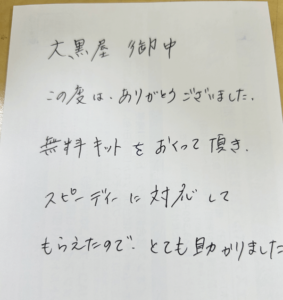 大黒屋 御中
この度は、ありがとうございました。
無料キットをおくって頂き、
スピーディーに対応して
もらえたので、とても助かりました